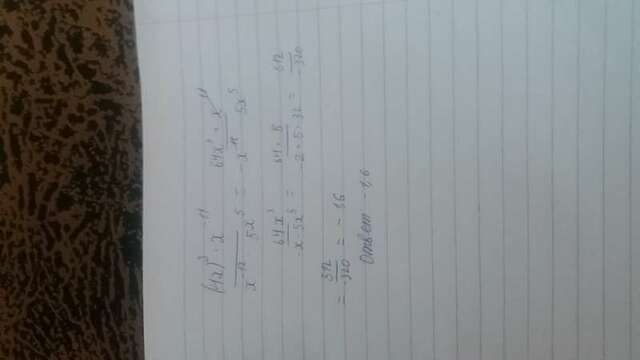 (4x)³ · x⁻¹¹ / x⁻¹² · 5x⁵ = 64x³ · x⁻¹¹ / -x⁻¹² 5x⁵
64x³ / -x·5x⁵ = 64 · 8 / -2 · 5 · 32 = 512 / -320
= 512 / -320 = - 1,6
Ответ -1,6